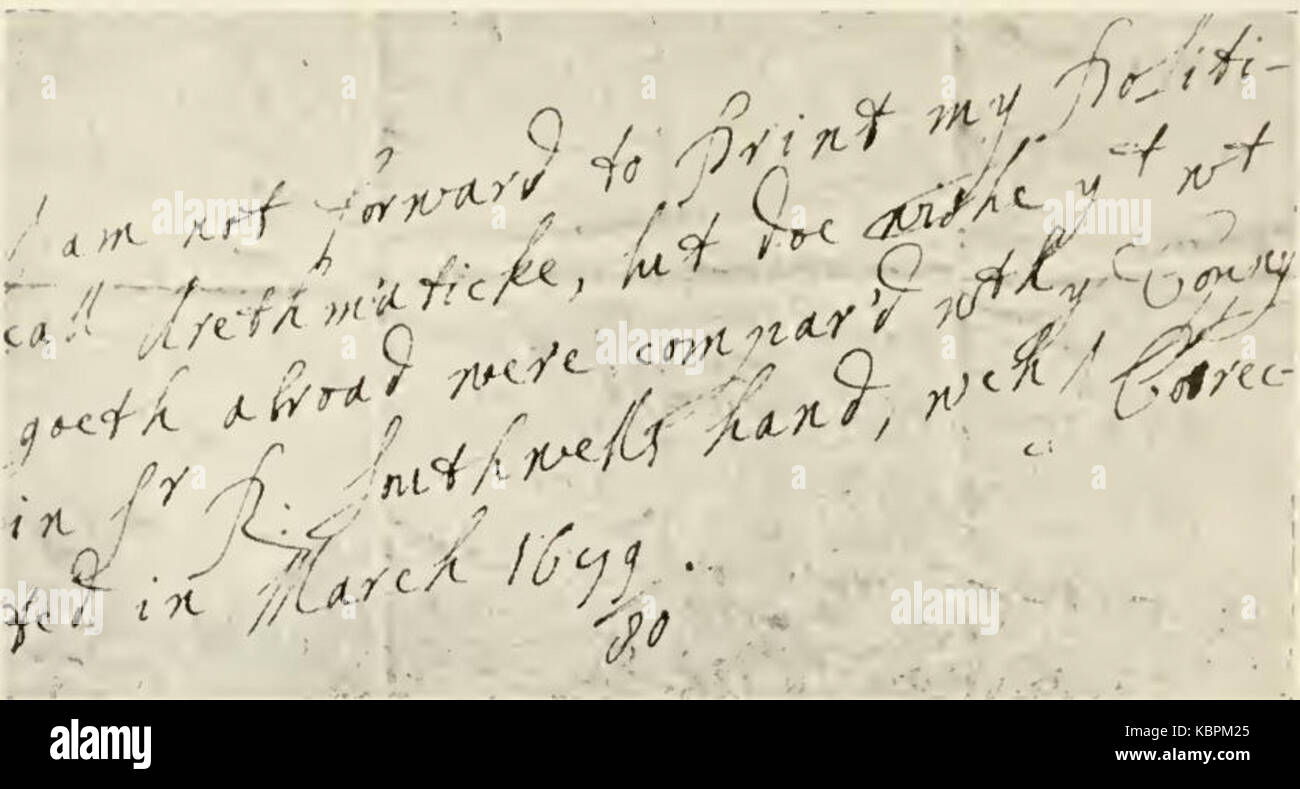 I am not forward to Print my Politi-
call Arethmaticke, but doe wishe yt wt
goeth abroad were compar'd wth ye Coppy
in Sr R. Southwells hand, wch I Correc-
ted in March 1679/80.
alamy
alamy stock photo
KBPM25
www.alamy.com